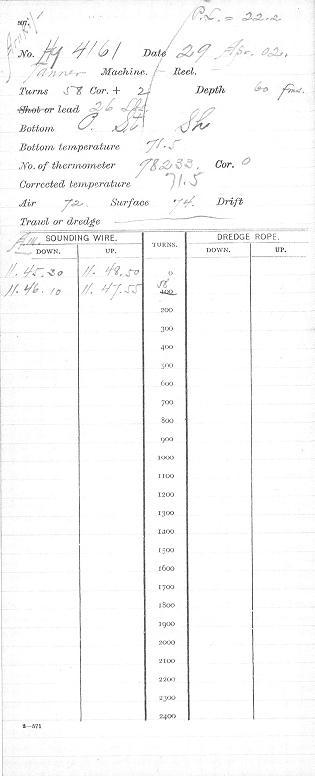 P.L. = 22.2
507.
No. Hy 4161 Date 29 Apr. 02.
Tanner Machine. Reel.
Turns 58 Cor. + 2 Depth 60 fms.
Shot or lead 26 Lbs
Bottom P. St Sh
Bottom temperature 71.5
No. of thermometer 78233. Cor. 0
Corrected temperature 71.5
Air 72. Surface 74. Drift
Trawl or dredge
SOUNDING WIRE. TURNS. DREDGE ROPE.
DOWN. UP. DOWN. UP.
11.45.30 11.48.50 0
11.46.10 11.47.55 58 100
200
300
400
500
600
700
800
900
1000
1100
1200
1300
1400
1500
1600
1700
1800
1900
2000
2100
2200
2300
2400
2—571